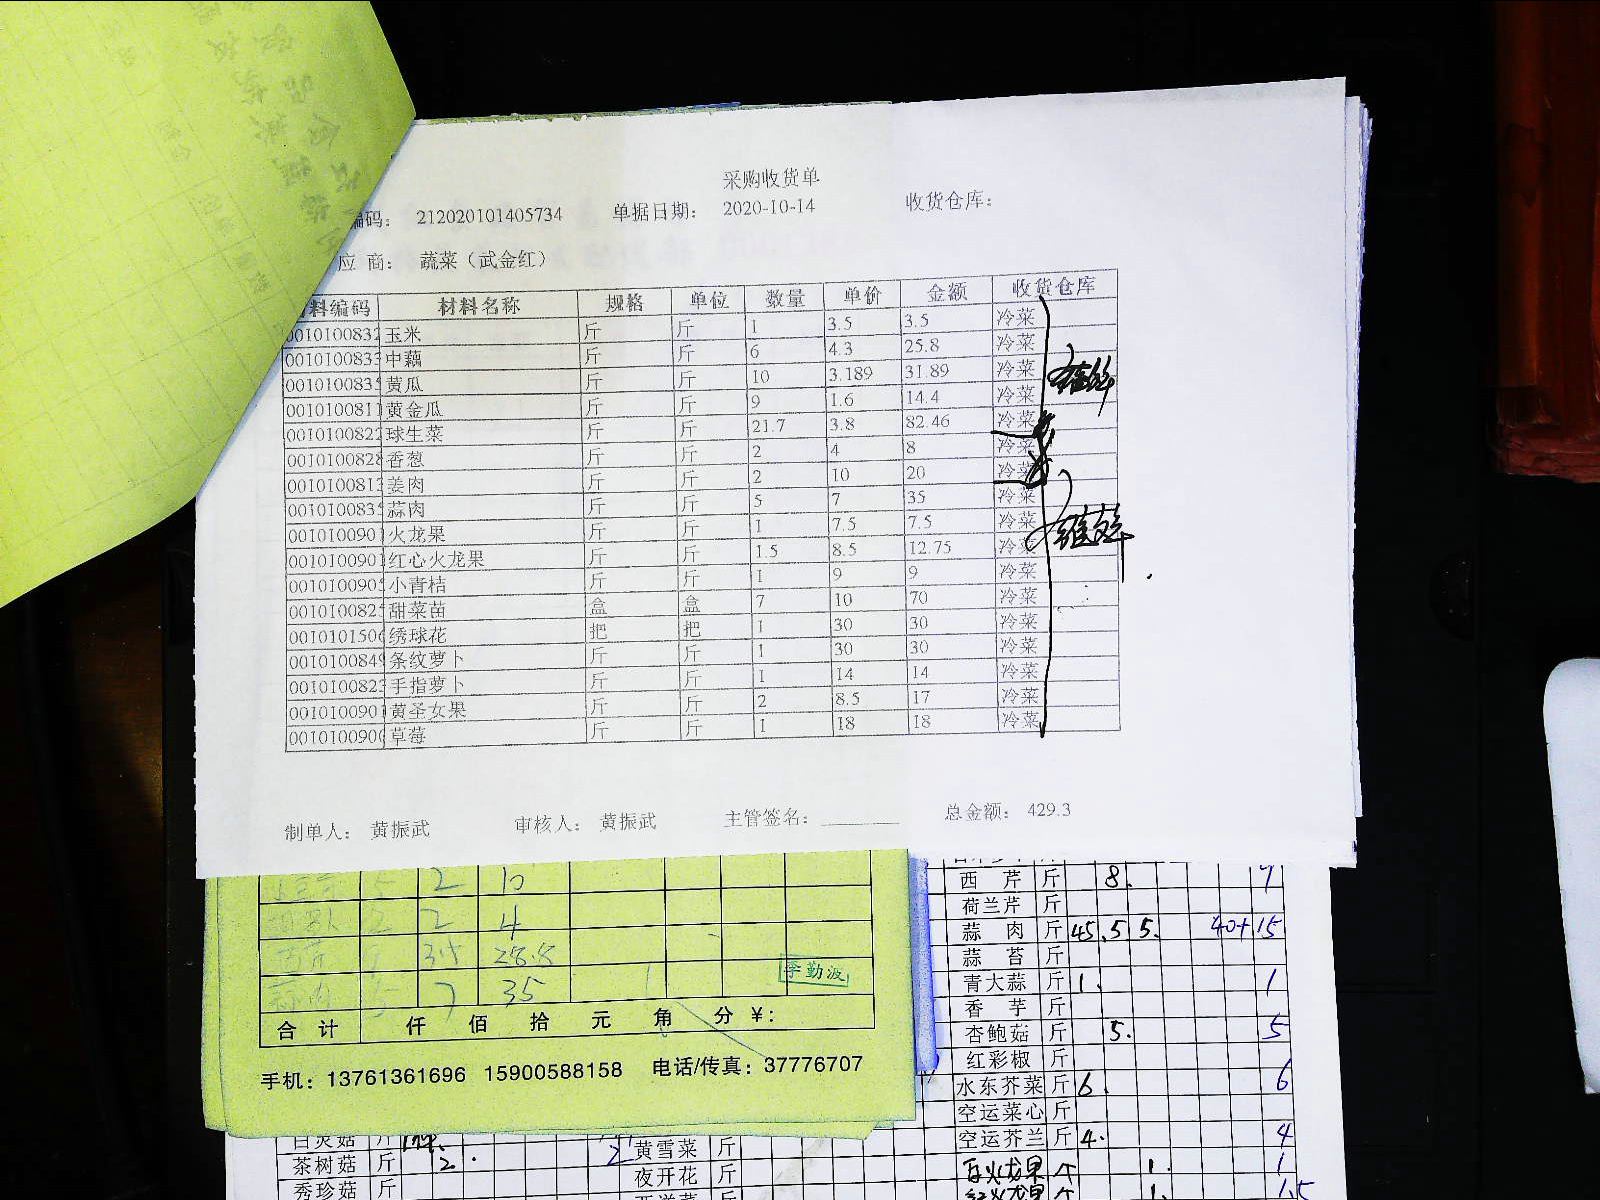 采购收货单
编码： 212020101405734 单据日期： 2020-10-14 收货仓库：
应 商： 蔬菜（武金红）
料编码 材料名称 规格 单位 数量 单价 金额 收货仓库
0010100832 玉米 斤 斤 1 3.5 3.5 冷菜
0010100833 中藕 斤 斤 6 4.3 25.8 冷菜
0010100835 黄瓜 斤 斤 10 3.189 31.89 冷菜
0010100811 黄金瓜 斤 斤 9 1.6 14.4 冷菜
0010100822 球生菜 斤 斤 21.7 3.8 82.46 冷菜
0010100828 香葱 斤 斤 2 4 8 冷菜
0010100813 姜肉 斤 斤 2 10 20 冷菜
0010100835 蒜肉 斤 斤 5 7 35 冷菜
001010090 火龙果 斤 斤 1 7.5 7.5 冷菜
001010090 红心火龙果 斤 斤 1.5 8.5 12.75 冷菜
0010100905 小青桔 斤 斤 1 9 9 冷菜
0010100825 甜菜苗 盒 盒 7 10 70 冷菜
0010101506 绣球花 把 把 1 30 30 冷菜
0010100849 条纹萝卜 斤 斤 1 30 30 冷菜
0010100823 手指萝卜 斤 斤 1 14 14 冷菜
001010090 黄圣女果 斤 斤 2 8.5 17 冷菜
0010100900 草莓 斤 斤 1 18 18 冷菜
制单人： 黄振武 审核人： 黄振武 主管签名： 总金额： 429.3
2 10
2 4
3.5 28.8
蒜肉 5 7 35
李勤波
合 计 仟 佰 拾 元 角 分 ¥：
手机：13761361696 15900588158 电话/传真：37776707
西 芹 斤 8. 9
荷兰芹 斤
蒜 肉 斤 45 .5 5. 40+15
蒜 苔 斤
青大蒜 斤 1. 1
香 芋 斤
杏鲍菇 斤 5. 5
红彩椒 斤
水东芥菜 斤 6. 6
空运菜心 斤
空运芥兰 斤 4. 4
白火龙果 个 1. 1
红火龙果 个 1. 1.5
白灵菇 斤
茶树菇 斤 2. 2
秀珍菇 斤
黄雪菜 斤
夜开花 斤